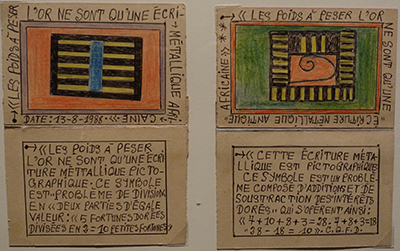 «LES POIDS À PESER
L'OR NE SONT QU'UNE ÉCRI-
MÉTALLIQUE AFRI-
CAINE»
DATE: 13-8-1988
«LES POIDS À PESER
L'OR NE SONT QU'UNE ÉCRI
TURE MÉTTALLIQUE PICTO-
GRAPHIQUE. CE SYMBOLE
EST «PROBLEME DE DIVISION
EN «DEUX PARTIES D'ÉGALE
VALEUR: «6 FORTUNES DORÉES
DIVISÉES EN 3 = 10 PETITES FORTUNES»
«LES POIDS À PESER L'OR
NE SONT QU'UNE
ÉCRITURE MÉTALLIQUE ANTIQUE
AFRICAINE»
«CETTE ÉCRITURE MÉTA-
LLIQUE EST PICTOGRAPHIQUE
CE SYMBOLE EST UN PROBLÈ-
ME COMPOSÉ D'ADDITIONS ET DE
SOUSTRACTION DES INTÉRÊTS
DORÉS» QUI S'OPÈRENT AINSI:
«4+10+8+3=28.-7+8+3=18
28-18=10». C.Q.F.D.